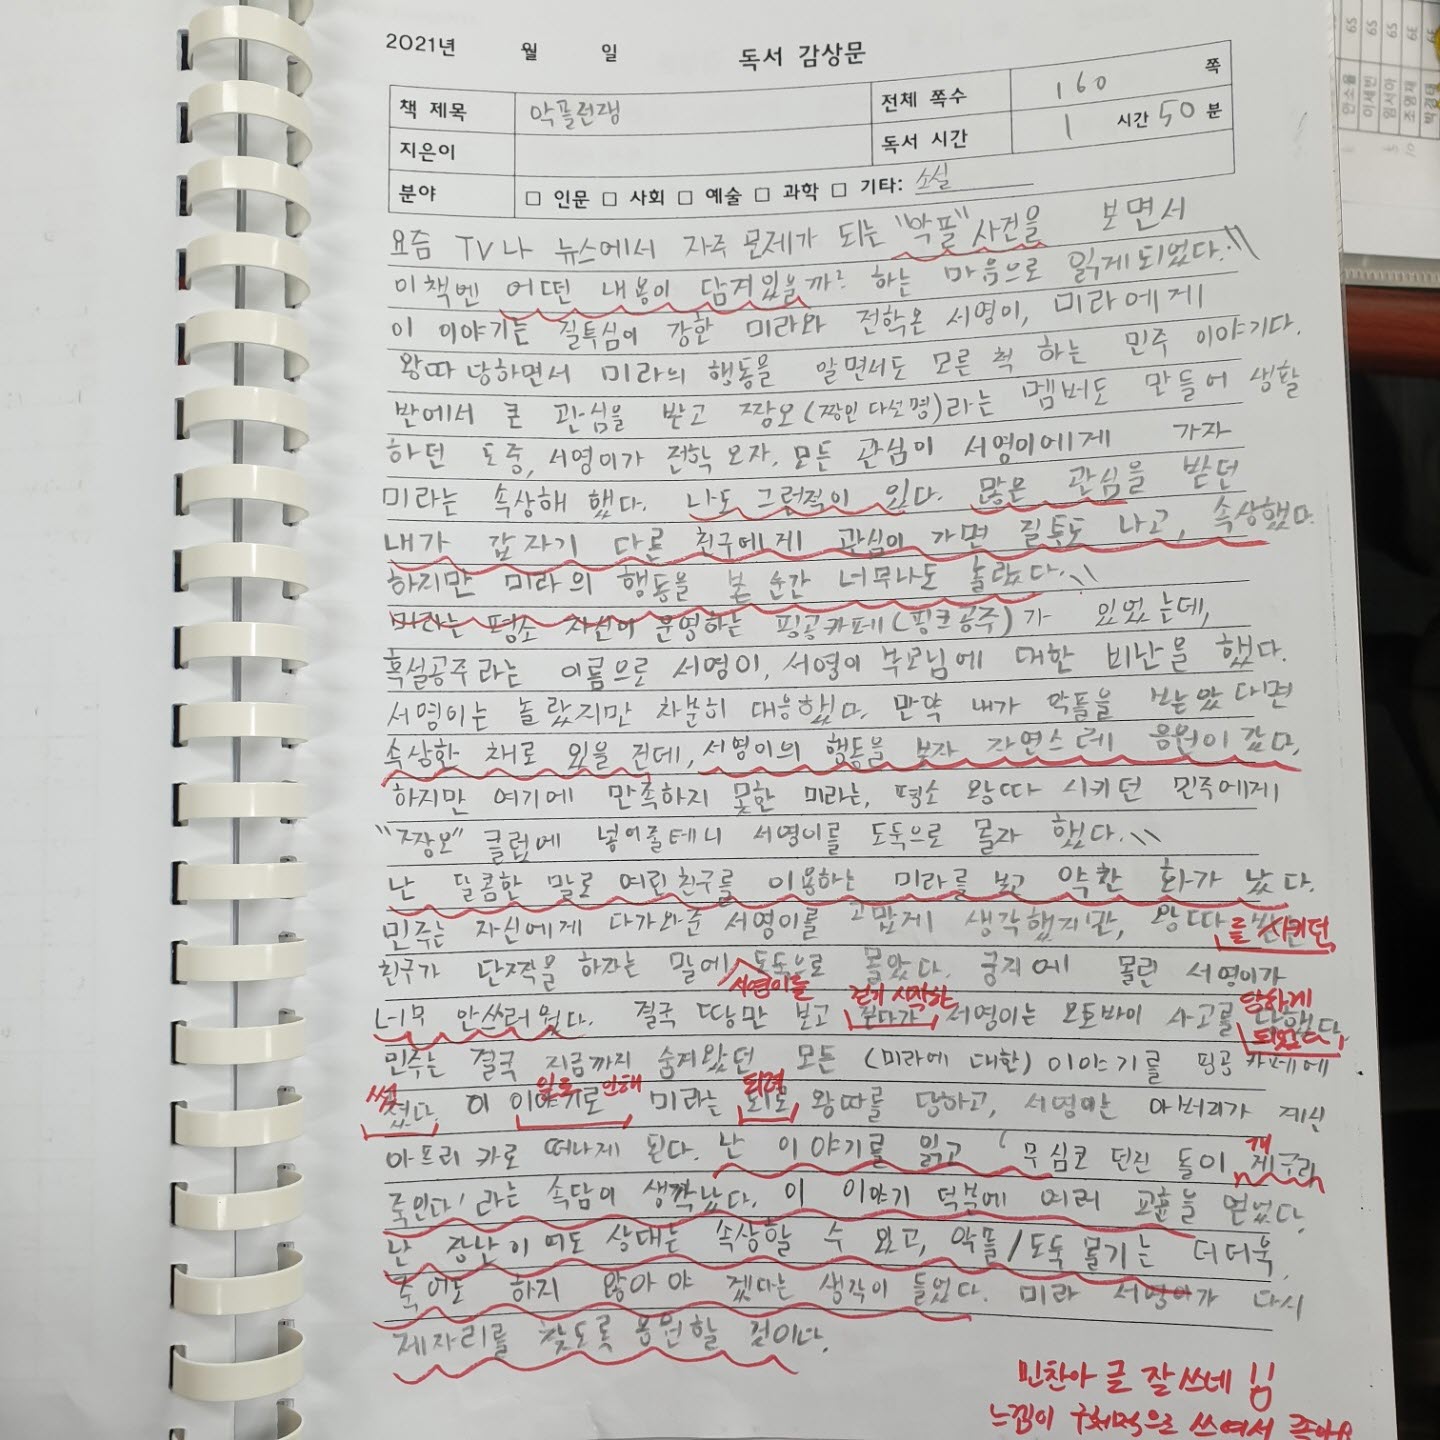 2021년 월 일 독서 감상문
책 제목 악플런쟁 전체 쪽수 160 쪽
지은이 독서 시간 1 시간 50 분
분야 □ 인문 □ 사회 □ 예술 □ 과학 □ 기타: 소설
요즘 TV나 뉴스에서 자주 문제가 되는 "악플" 사건을 보면서
이책엔 어떤 내용이 담겨있을까? 하는 마음으로 읽게되었다.
이 이야기는 질투심이 강한 미라와 전학온 서영이, 미라에게
왕따 당하면서 미라의 행동을 알면서도 모른 척 하는 민주 이야기다.
반에서 큰 관심을 받고 짱오(짱인 다섯명)라는 멤버도 만들어 생활
하던 도중, 서영이가 전학 오자, 모든 관심이 서영이에게 가자
미라는 속상해 했다. 나도 그런적이 있다. 많은 관심을 받던
내가 갑자기 다른 친구에게 관심이 가면 질투도 나고, 속상했다.
하지만 미라의 행동을 본 순간 너무나도 놀랐다.
미라는 평소 자신이 운영하는 핑공카페(핑크공주)가 있었는데,
흑설공주라는 이름으로 서영이, 서영이 부모님에 대한 비난을 했다.
서영이는 놀랐지만 차분히 대응했다. 만약 내가 악플을 받았다면
속상한 채로 있을 건데, 서영이의 행동을 보자 자연스레 응원이 갔다.
하지만 여기에 만족하지 못한 미라는, 평소 왕따 시키던 민주에게
"짱오" 클럽에 넣어줄테니 서영이를 도둑으로 몰자 했다.
난 달콤한 말로 여린친구를 이용하는 미라를 보고 약한 화가 났다.
민주는 자신에게 다가와준 서영이를 고맙게 생각했지만, 왕따를 시키던
친구가 단짝을 하자는 말에 서영이를 도둑으로 몰았다. 궁지에 몰린 서영이가
너무 안쓰러웠다. 결국 땅만 보고 걷기 시작한 서영이는 오토바이 사고를 당하게 되었다.
민주는 결국 지금까지 숨겨왔던 모든 (미라에 대한) 이야기를 핑공 카페에
썼다. 이 일로 인해 미라는 되려 왕따를 당하고, 서영이는 아버지가 계신
아프리카로 떠나게 된다. 난 이야기를 읽고 '무심코 던진 돌이 개구리
죽인다'라는 속담이 생각났다. 이 이야기 덕분에 여러 교훈을 얻었다.
난 장난이여도 상대는 속상할 수 있고, 악플/도둑 몰기는 더더욱,
죽어도 하지 않아야 겠다는 생각이 들었다. 미라 서영이가 다시
제자리를 찾도록 응원할 것이다.
민찬아 글 잘 쓰네 !!
느낌이 구체적으로 쓰여서 좋아요